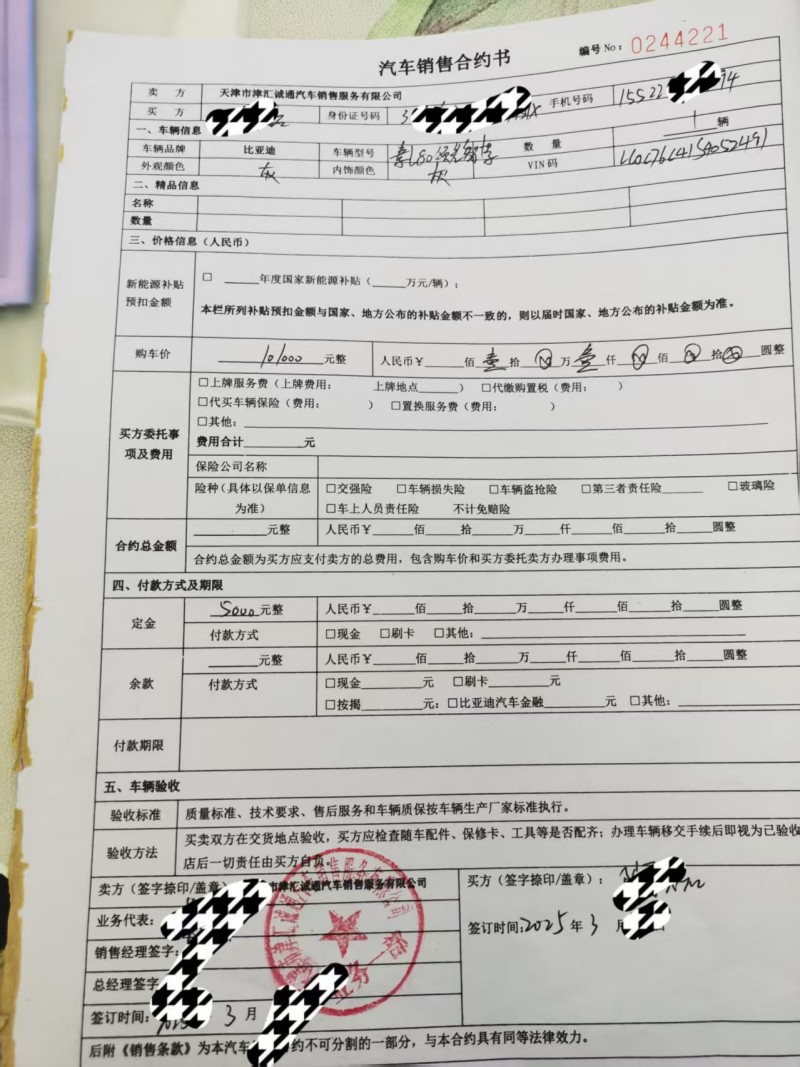 汽车销售合约书
编号 No: 0244221
卖 方 天津市津汇诚通汽车销售服务有限公司
买 方 身份证号码 手机号码 15522 4
一、车辆信息
车辆品牌 比亚迪 车辆型号 数 量 1 辆
外观颜色 灰 内饰颜色 灰 VIN 码
二、精品信息
名称
数量
三、价格信息（人民币）
新能源补贴预扣金额 □ ______年度国家新能源补贴（______万元/辆）；
本栏所列补贴预扣金额与国家、地方公布的补贴金额不一致的，则以届时国家、地方公布的补贴金额为准。
购车价 101000 元整 人民币￥______佰 壹 拾 万 壹 仟 佰 拾 圆整
买方委托事项及费用 □上牌服务费（上牌费用： 上牌地点______） □代缴购置税（费用： ）
□代买车辆保险（费用： ） □置换服务费（费用： ）
□其他：
费用合计______元
保险公司名称
险种（具体以保单信息为准） □交强险 □车辆损失险 □车辆盗抢险 □第三者责任险______ □玻璃险
□车上人员责任险 不计免赔险
合约总金额 ______元整 人民币￥______佰______拾______万______仟______佰______拾______圆整
合约总金额为买方应支付卖方的总费用，包含购车价和买方委托卖方办理事项费用。
四、付款方式及期限
定金 5000 元整 人民币￥______佰______拾______万______仟______佰______拾______圆整
付款方式 □现金 □刷卡 □其他：
余款 ______元整 人民币￥______佰______拾______万______仟______佰______拾______圆整
付款方式 □现金______元 □刷卡______元
□按揭______元：□比亚迪汽车金融______元 □其他：
付款期限
五、车辆验收
验收标准 质量标准、技术要求、售后服务和车辆质保按车辆生产厂家标准执行。
验收方法 买卖双方在交货地点验收，买方应检查随车配件、保修卡、工具等是否配齐；办理车辆移交手续后即视为已验收
店后一切责任由买方自负。
卖方（签字捺印/盖章） 市津汇诚通汽车销售服务有限公司
买方（签字捺印/盖章）：
业务代表：
签订时间:2025 年 3 月
销售经理签字：
总经理签字
签订时间： 3 月
后附《销售条款》为本汽车 约不可分割的一部分，与本合约具有同等法律效力。